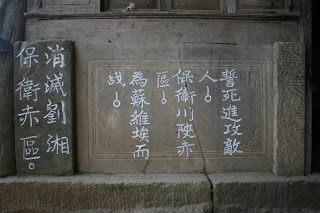 誓死進攻敵
人！
保衛川陝赤
區！
為蘇維埃而
战！
消滅劉湘
保衛赤區。